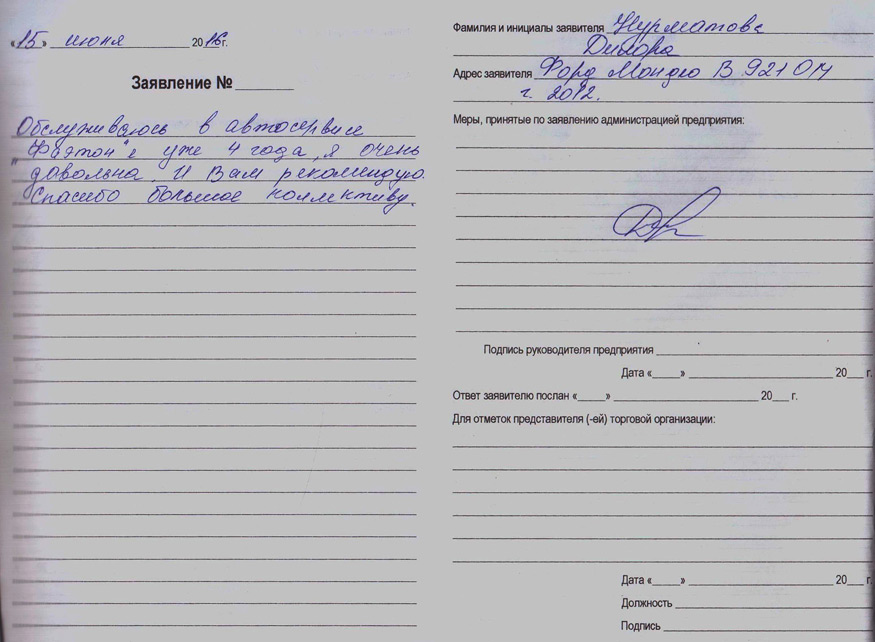 «15» июня 2016г.
Заявление № ______
Обслуживаюсь в автосервисе
"Фаэтон"е уже 4 года, я очень
довольна. И Вам рекомендую.
Спасибо большое коллективу.
Фамилия и инициалы заявителя Нурматова
Дилора
Адрес заявителя Форд Мондео В 921 ОМ
г. 2012.
Меры, принятые по заявлению администрацией предприятия:
Подпись руководителя предприятия
Дата «_____» 20___ г.
Ответ заявителю послан «_____» 20___ г.
Для отметок представителя (-ей) торговой организации:
Дата «_____» 20___ г.
Должность
Подпись